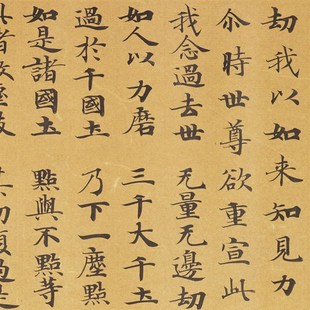 劫我以如来知見力
尒時世尊欲重宣此
我念過去世 无量无邊劫
如人以力磨 三千大千土
過於千國土 乃下一塵點
如是諸國土 點與不點等